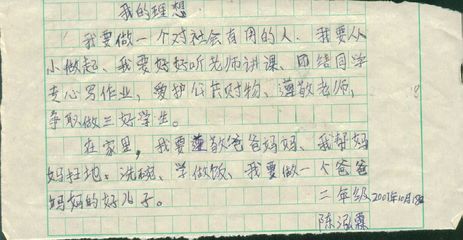 我的理想
我要做一个对社会有用的人。我要从
小做起、我要好好听老师讲课、团结同学
专心写作业，爱护公共财物、遵敬老师，
争取做三好学生。
在家里，我要遵敬爸爸妈妈、我帮妈
妈扫地、洗碗、学做饭、我要做一个爸爸
妈妈的好儿子。
二年级 2001年10月18日
陈泓霖